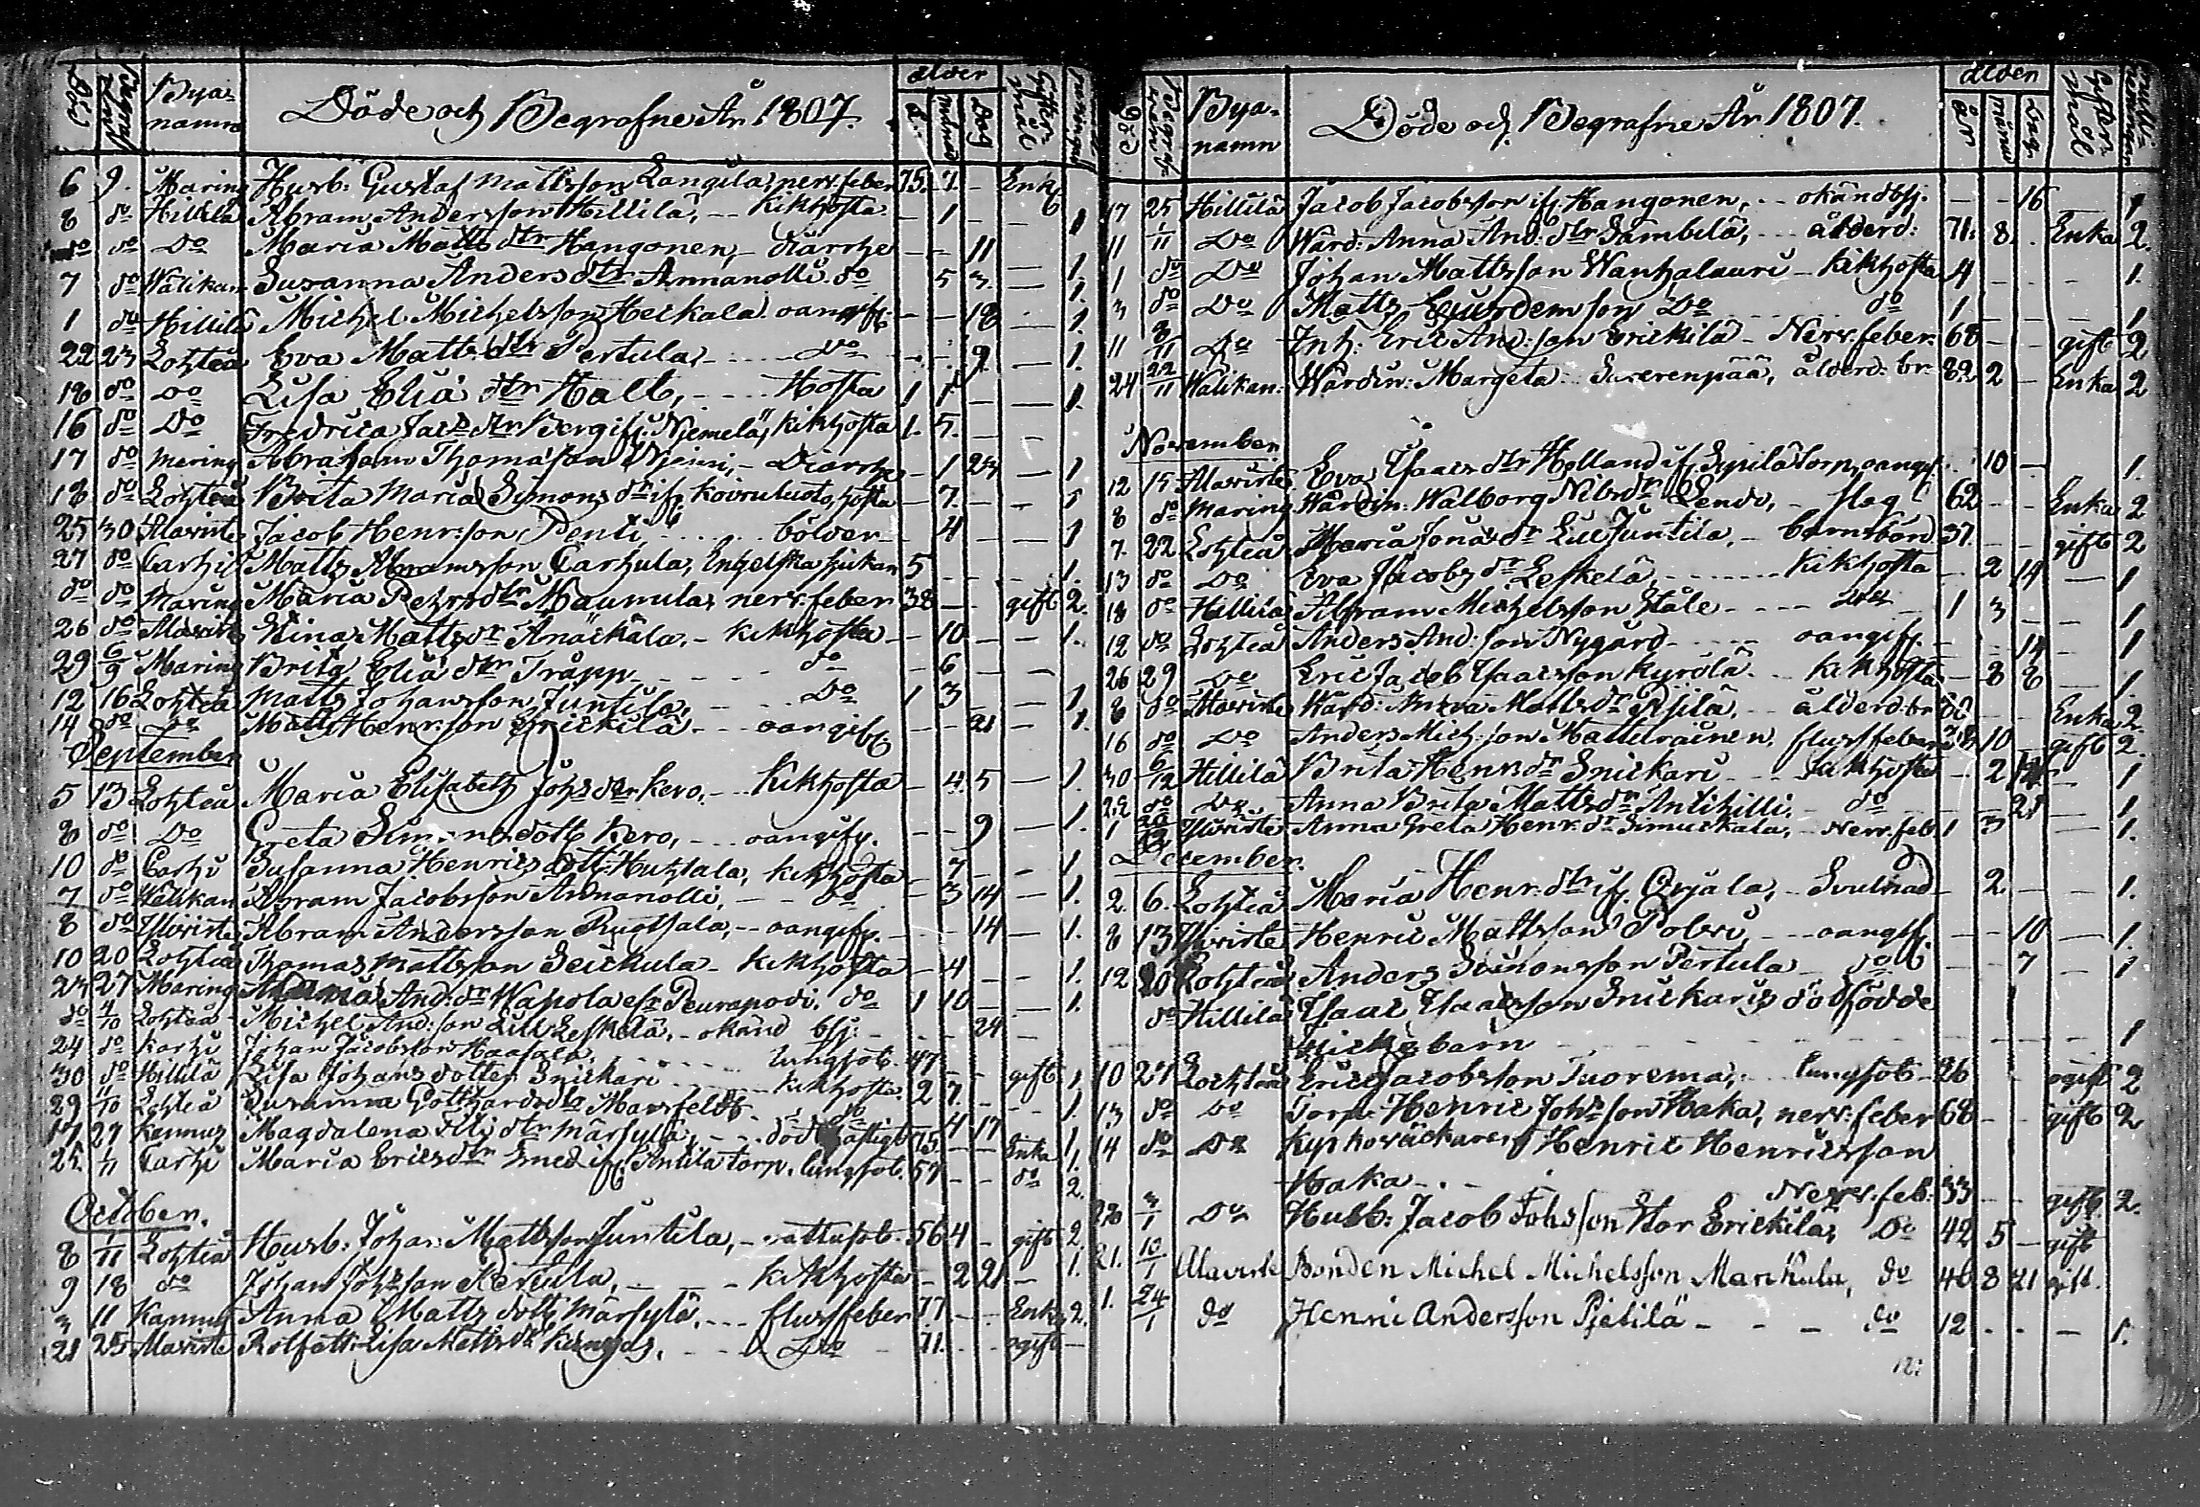 Död Begrafne Bya-namn Döde och Begrafne År 1807. ålder år månad dag Giftermål
6 9. Maring Husb: Gustaf Mattsson Långila, nerv.feber 75. 7. - Enkl
8 do Hillilä Abram Andersson Hillilä, -- Kikhosta - 1 - - 1
do do Do Maria Matts dtr Hangonen, - diarrhe - - 11 - 1.
7 do Wälikan Susanna Anders dtr Annanolli do 5 3. - 1.
1 do Hillilä Michel Michelsson Heikala oangif. - - 18 - 1.
22 23 Lohteå Eva Matts dtr Pertula, - Do - - 9. - 1.
18 do Do Lisa Eliä dtr Halt, - Hosta 1 1 - - 1.
16 do Do Fredrica Jacs dtr Berg if. Njemelä, Kikhosta 1. 5. - -
17 do Maring Abraham Thomasson Njemi, - Diarrhe - 1 23 - 1
18 do Lohteå Brita Maria Simons dr if. Koivuluoto, hosta - 7. - - 1
25 30 Alaviirte Jacob Henr:son Penti, ... bölder - 4 - - 1
27 do Carhi Matts Abramsson Carhula, Engelska sjukan 5 - - - 1.
do do Maring Maria Pehrs dtr Maunula, nerv.feber 38 - - gift 2.
26 do Alaviirte Stina Matts dr Anäckälä, - Kikhosta - 10. - - 1.
29 6/9 Maring Brita Eliä dtr Träpp - do - 6 - -
12 16 Lohteå Matts Johansson Juntila, - Do 1 3 - - 1
14 do Do Matts Henr:son Erickilä - oangif. - - 21 - 1.
September
5 13 Lohteå Maria Elisabeth Johs dtr Kero, - Kikhosta - 4 5 - 1.
8 do Do Greta Simons dott Kero, - oangif. - - 9 - 1.
10 do Carhi Susanna Henrics dott: Huhtala, Kikhosta - 7 - - 1
7 do Wälikan Abram Jacobsson Annanolli, - do - 3 14 - 1.
8 do Ylivirte Abram Andersson Ruotsala, -- oangif. - - 14 - 1.
10 20 Lohteå Thomas Mattsson Seickula - Kikhosta - 4 - - 1.
23 27 Maring And: dr Wapola elr Peurapodi. do 1 10 - - 1.
do 4/10 Lohteå Michel And:son Lill Leskelä, - okänd bsj: - - 24 -
24 do Karhi Johan Jacobsson Haasala, - lungsot. 47 - - gift 1
30 do Hillilä Lisa Johans dotter Snickari - Kikhosta. 2 7. - - 1.
29 11/10 Lohteå Susanna Gotthards dtr Mansfeldt. do - 4 17 - 1
17 27 Kennus Magdalena Elis dtr Märsylä, - död hastigt 75. - - Enka 1.
25. 1/11 Carhi Maria Erics dtr Smed if. Antila torp. lungsot. 57 - - do 2.
October.
8 1/11 Lohteå Husb: Johan Mattsson Juntila, - vattusot. 56 4 - gift 2
9 18 do Johan Johsson Pertula, - - Kikhosta - 2 21 - 1.
3 11 Kännus Anna Matts dott. Märsylä, - flussfeber 77 - - Enka 2.
21 25 Alavirte Lisa Matts dr Kungas, - Do - 71. - - ogift -
Död Begrafne Bya-namn Döde och Begrafne År 1807. ålder år månad dag Giftermål
17 25 Hillilä Jacob Jacobsson if. Hangonen, - okänd bsj. - - 16 - 1
11 1/11 Do Wärd: Anna And: dtr Sämbilä, - ålderd: 71. 8. - Enka 2.
1 do Do Johan Mattsson Wanhalauri - Kikhosta 4 - - - 1.
3 do Do Matts Do do 1 - - - 1
11 8/11 Do Inh: Eric And:son Erickilä - Nerv.feber: 68 - - gift 2
24 22/11 Wälikan: Wärdin: Margeta Suxenpää, ålderd: br: 82 2 - Enka 2
November
12 15 Alavirte Eva Isaacs dtr Holland if. Sipilä torp, oangif. - 10 - 1.
8 do Maring Wärdin: Walborg Nils dr Lendo, - slag 62 - - Enka 2
7. 22 Lohteå Maria Jonä dr Lill Juntila, - barnsbörd 37. - - gift 2
13 do Do Eva Jacobs dr Leskelä, - Kikhosta - 2 14 - 1
18 do Hillilä Abram Michelsson Ståle - - do 1 3 - - 1
12 do Lohteå Anders And:son Nygård - - oangif. - - 14 - 1
26 29 Do Eric Jacob Isaacsson Kyrölä - Kikhosta - 8 8 - 1.
8 do Alavirte Wärd: Anna Matts dr Pijlä, - ålderd: br 80 - - Enka 2.
16 do Do Anders Mich:son Mattelrainen, flussfeber 38 10 - gift 2.
30 6/12 Hillilä Brita Henr. dr Snickari - Kikhosta - 2 - 1
22 do Do Anna Brita Matts dr Antihilli, - do - - 21 - 1
1 Ylivirte Anna Greta Henr: dr Simuckala, - Nerv.feb. 1 3 - - 1.
December.
2. 6. Lohteå Maria Henr. dtr if. Orjala, - Svulnad - 2. - - 1.
8 13 Ylivirte Henric Mattsson Polvi - - oangif. - - 10 - 1.
12 20 Lohteå Anders Simonsson Pertula - do - - 7 - 1
do Hillilä Isaac Isaacsson Snickaris dödfödde
flicke barn - - - 1
10 27 Lochteå Eric Jacobsson Tuorema, - lungsot - 26 ogift 2
13 do Do Torp. Henric Johs son Haka, nerv.feber 68 - - gift 2
14 do Do Kyrkoväckaren Henric Henricsson
Haka - - Nerv.feb: 33 - - gift. 2.
28 3/1 Do Husb: Jacob Johsson Stor Erickilä, Do 42 5 - gift
21. 10/1 Alavirte Bonden Michel Michelsson Marikula, do 46 8 21 gift.
1. 24/1 do Henric Andersson Pjetilä - - - do 12 - - - 1.